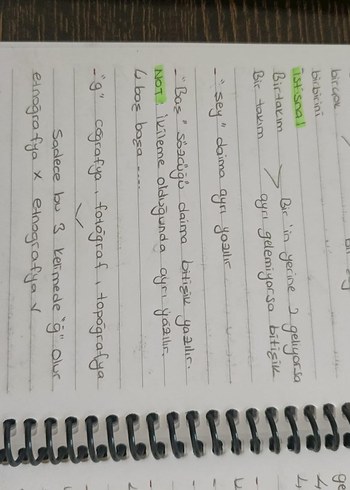 birçok
birbirini
istisna!
Birtakım > Bir'in yerine 2 geliyorsa
Bir takım ayrı gelemiyorsa bitişik
- "Şey" daima ayrı yazılır.
- "Baş" sözcüğü daima bitişik yazılır.
NOT: ikileme olduğunda ayrı yazılır.
↳ baş başa ......
- "ğ" coğrafya, fotoğraf, topoğrafya
Sadece bu 3 kelimede "ğ" olur
etnoğrafya x etnografya √